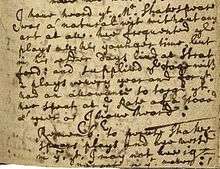 I have heard yt Mr. Shakespeare
was a natural wit without any
art at all, hee frequented ye
plays all his younger time, but
in his elder days livd at Strat
ford: and supplied ye stage with
2 plays every year, and for yt
had an allowance so large, yt
hee spent at ye Rate of
a year as I have heard:
Remember to peruse Shake
spears plays and bee versd
in ym, yt I may not bee igno
rant in yt matter: